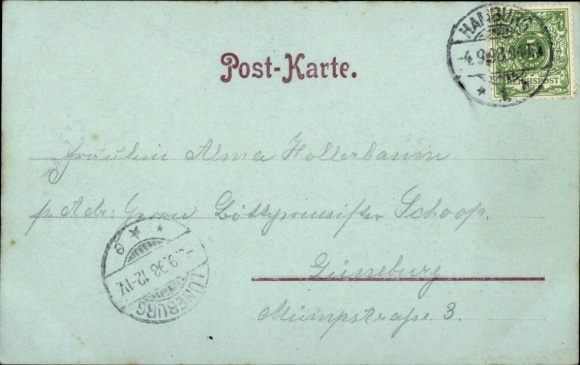 HAMBURG
4.9.98.
REICHSPOST
5
Post-Karte.
Fräulein Alma Hollerbaum
p. Adr: Herrn Böttchermeister Schoop.
Lüneburg
LÜNEBURG
9.98 12-1V.
3.